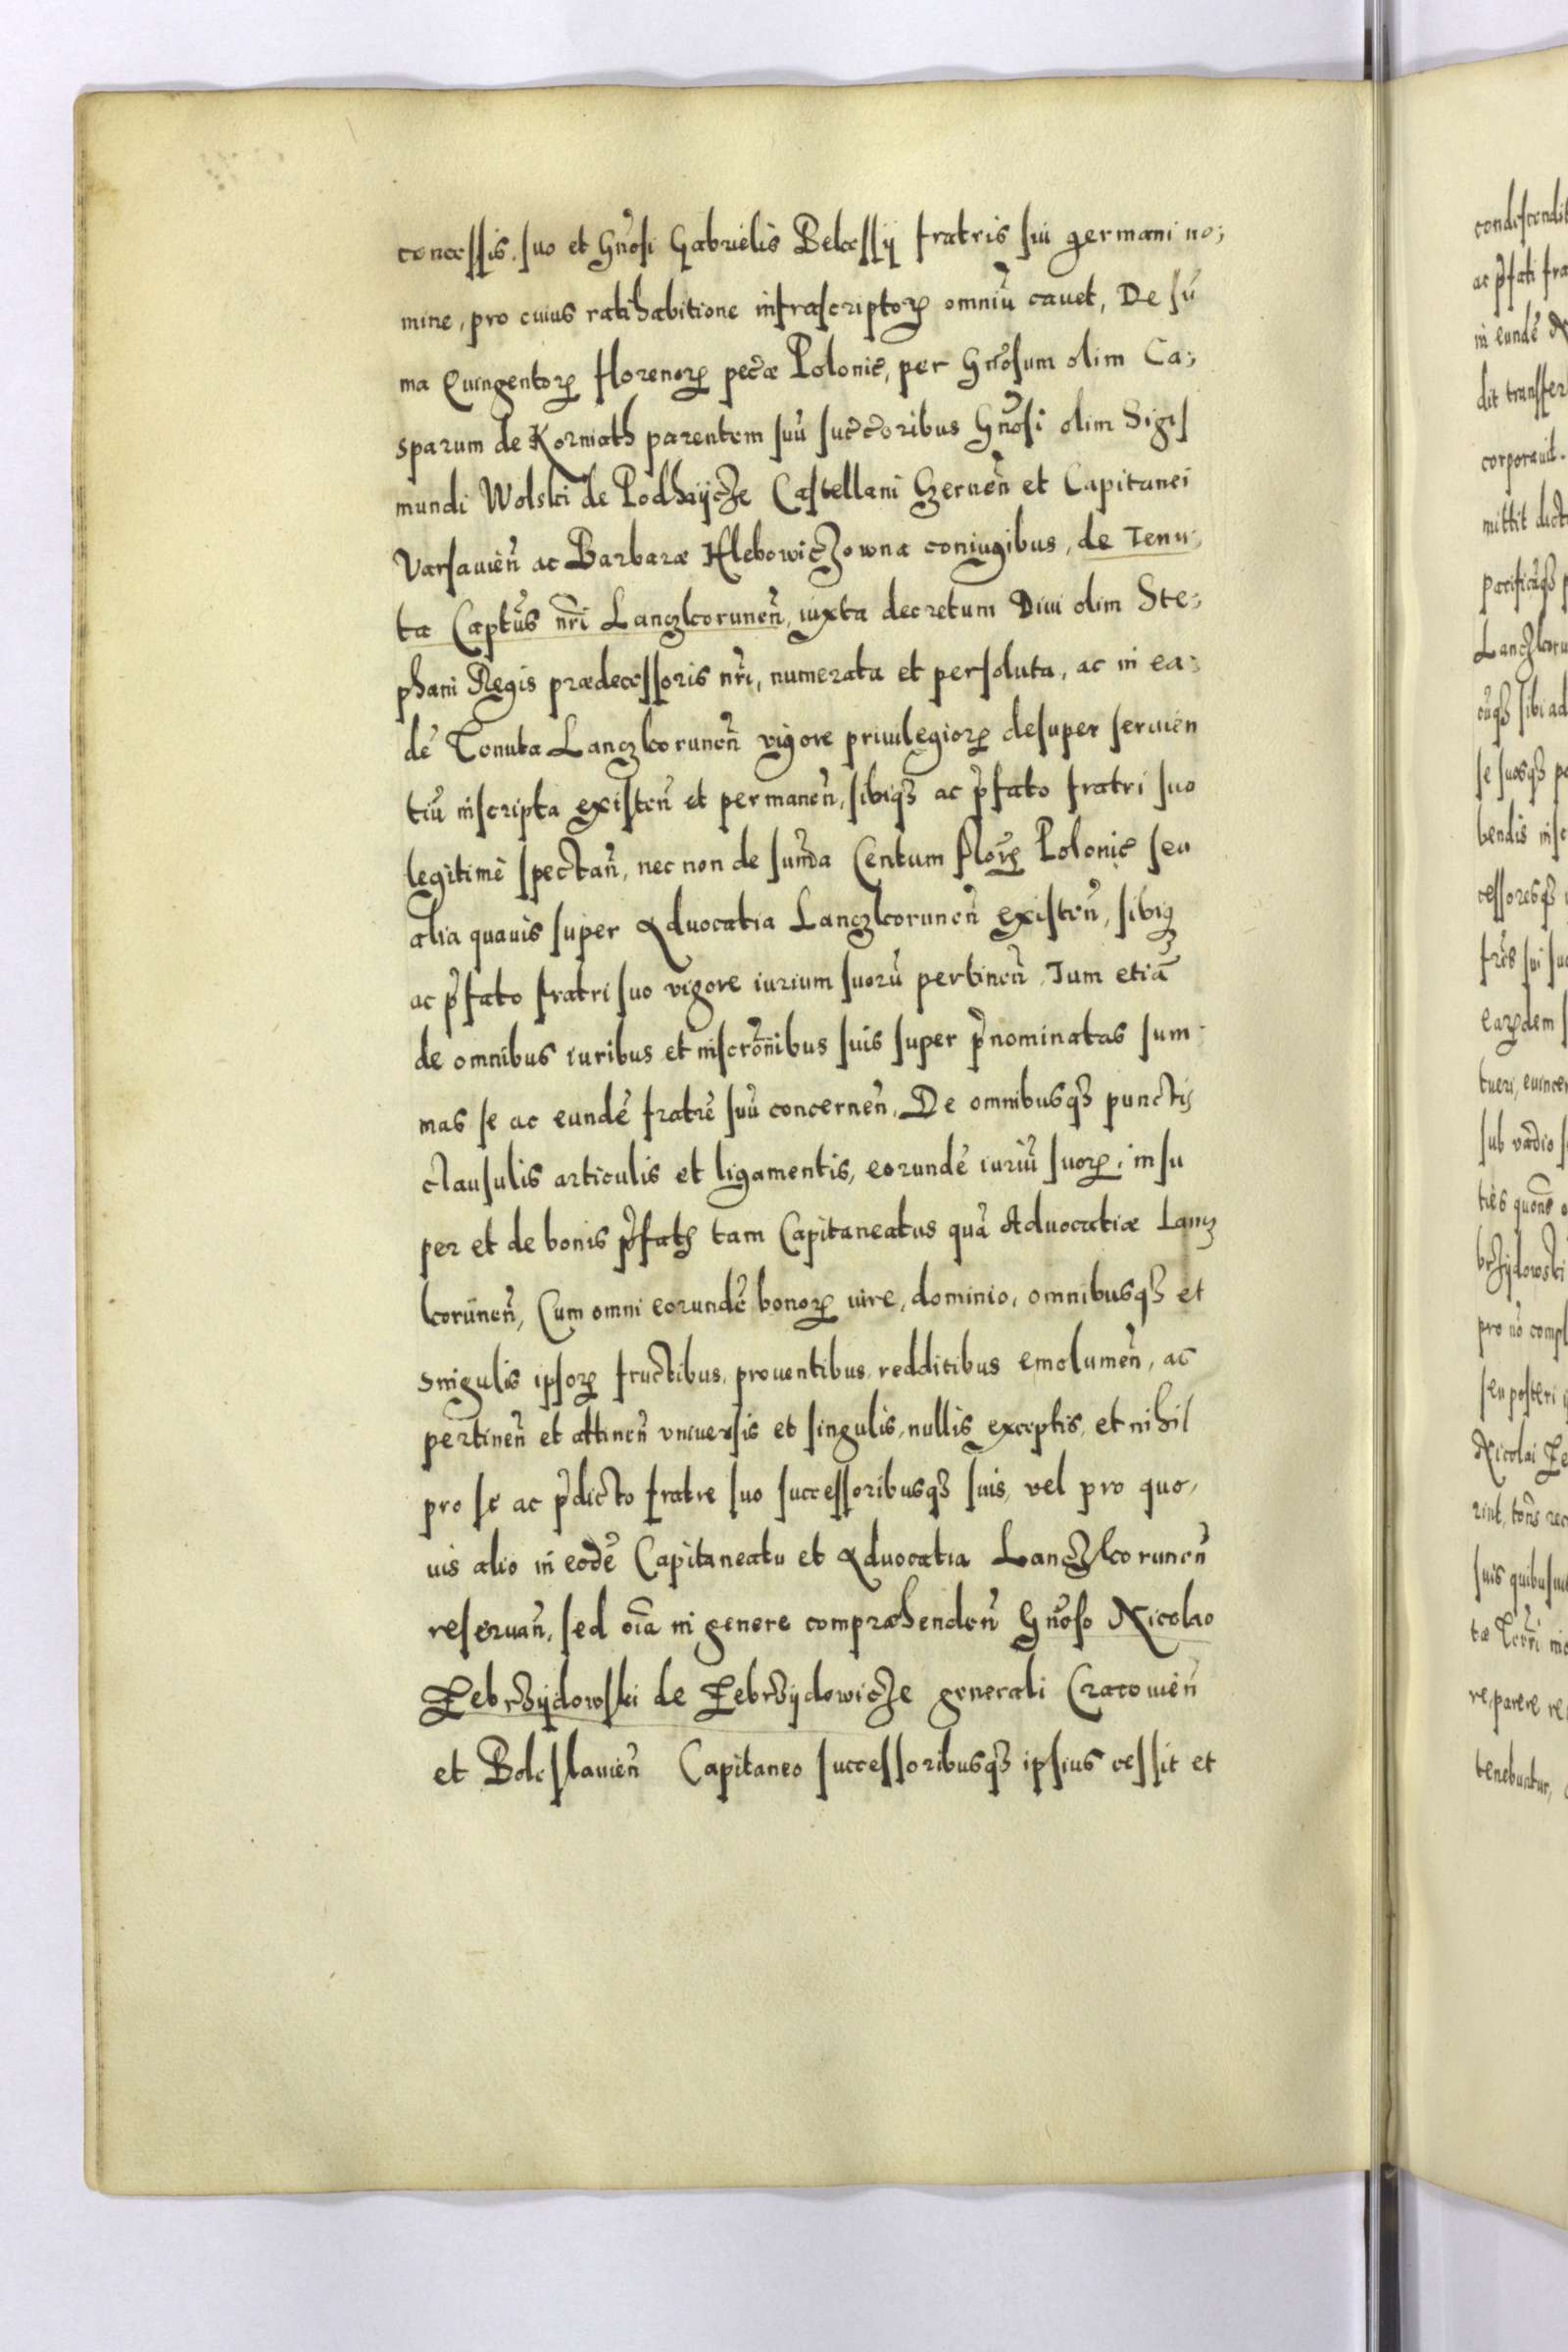 concessis. suo et Gñosi Gabrielis Bekessÿ fratris sui germani no;
mine, pro cuius ratihabitione infrascriptoꝝ omniũ cauet, De sũ
ma Quingentoꝝ florenoꝝ pecœ Polonic̃, per Gñosum olim Ca;
sparum de Korniath parentem suũ succ̃oribus Gñosi olim Sigis
mundi Wolski de Podhaycze Castellani Czernen̄ et Capitanei
Varsauien̄ ac Barbaræ Hlebowiczowna coniugibus, de Tenu;
ta Captũs nr̃i Lanczkorunen̄, iuxta decretum Diui olim Ste;
phani Regis prædecessoris nr̃i, numerata et persoluta, ac in ea;
dẽ Tenuta Lanczkorunen̄ vigore priuilegioꝝ desuper seruien
tiũ inscripta existen̄ et permanen̄, sibiqꝫ ac p̃fato fratri suo
legitimè spectan̄, nec non de sum̃a Centum floꝝ Polonic̃ seu
alia quauis super Aduocatia Lanczkorunen̄ existen̄, sibiq
ac p̃fato fratri suo vigore iurium suorũ pertinen̄, Tum etiã
de omnibus iuribus et inscrõnibus suis super p̃nominatas sum
mas se ac eundẽ fratrẽ suũ concernen̄, De omnibusqꝫ punctis
clausulis articulis et ligamentis, eorundẽ iuriũ suoꝝ, insu
per et de bonis p̃fatis tam Capitaneatus quã Aduocatiæ Lancz
korunen̄, Cum omni eorundẽ bonoꝝ iure, dominio, omnibusqꝫ et
singulis ipsoꝝ fructibus, prouentibus, redditibus emolumen̄, ac
pertinen̄ et attinen̄ vniuersis et singulis, nullis exceptis, et nihil
pro se ac p̃dicto fratre suo successoribusqꝫ suis, vel pro quo,
uis alio in eodẽ Capitaneatu et Aduocatia Lanczkorunen̄
reseruan̄, sed oĩa in genere compræhenden̄ Gñoso Nicolao
Zebrzÿdowski de Zebrzÿdowicze generali Cracouien̄
et Boleslauien̄ Capitaneo successoribusqꝫ ipsius cessit et